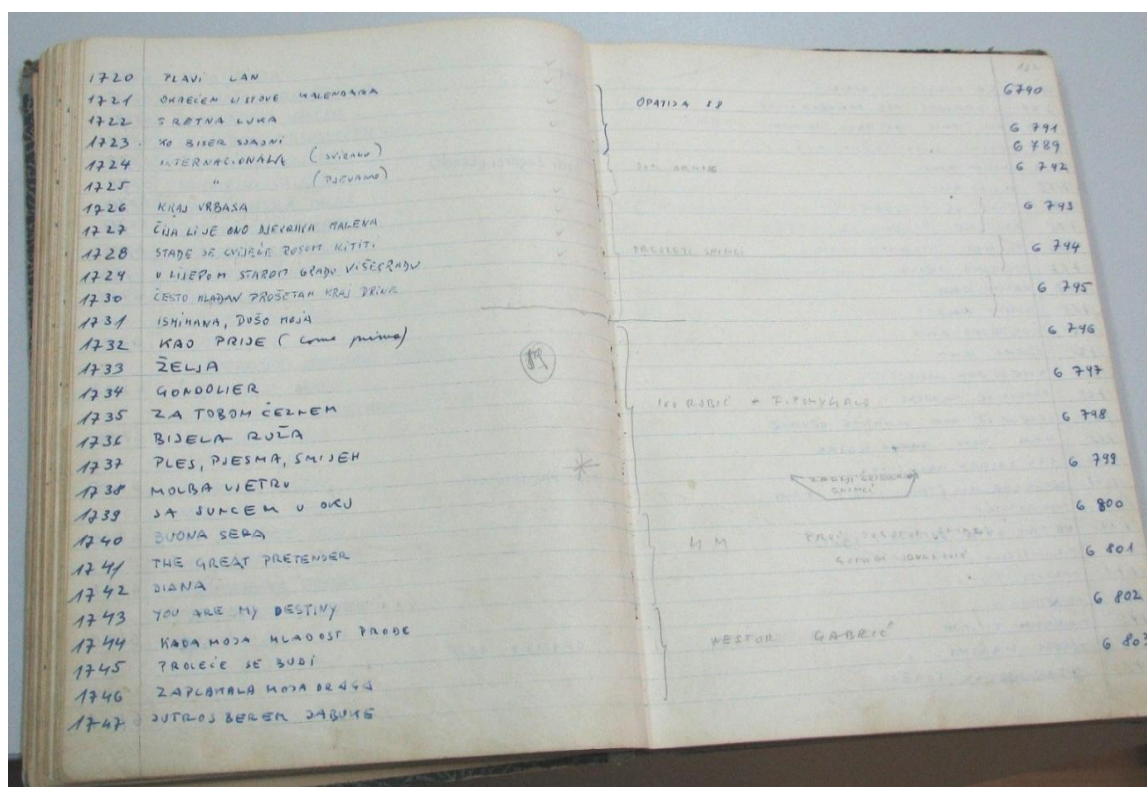 1720 PLAVI LAN
1721 OKREĆEM LISTOVE KALENDARA
1722 SRETNA LUKA
1723 KO BISER SJAJNI
1724 INTERNACIONALA (SVIRANO)
1725 " (PJEVANO)
1726 KRAJ VRBASA
1727 ČIJA LI JE ONO DJEVOJKA MALENA
1728 STADE SE CVIJEĆE ROSOM KITITI
1729 U LIJEPOM STAROM GRADU VIŠEGRADU
1730 ČESTO MLADAN PROŠETAM KRAJ DRINE
1731 ISMIHANA, DUŠO MOJA
1732 KAO PRIJE (Come prima)
1733 ŽELJA
1734 GONDOLIER
1735 ZA TOBOM ČEZNEM
1736 BIJELA RUŽA
1737 PLES, PJESMA, SMIJEH
1738 MOLBA VJETRU
1739 SA SUNCEM U OKU
1740 BUONA SERA
1741 THE GREAT PRETENDER
1742 DIANA
1743 YOU ARE MY DESTINY
1744 KADA MOJA MLADOST PROĐE
1745 PROLEĆE SE BUDI
1746 ZAPLAKALA MOJA DRAGA
1747 JUTROS BEREM JABUKE
6790
OPATIJA 58
6 791
6 789
6 792
DOM ARMIJE
6 793
6 794
SNIMCI
6 795
6 796
6 797
IVO ROBIĆ
6 798
6 799
ZADNJI
SNIMCI
6 800
4 M
6 801
6 802
NESTOR GABRIĆ
6 803